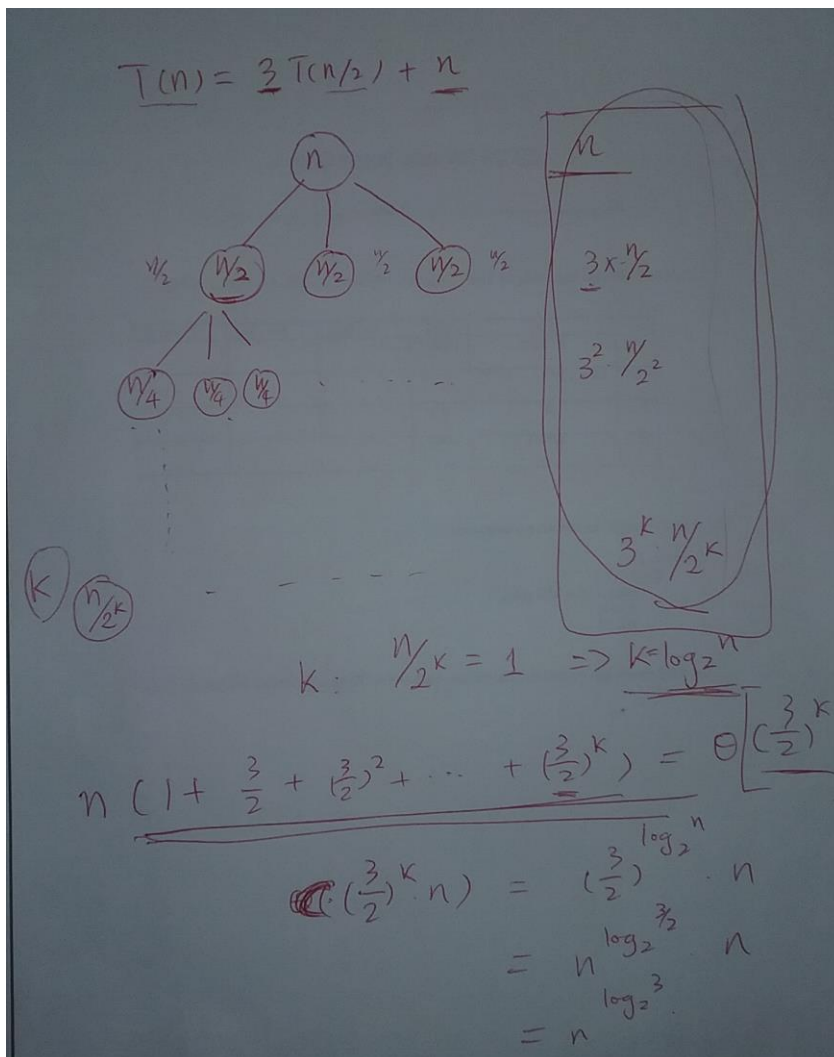 T(n) = 3 T(n/2) + n
n
n
n/2 n/2 n/2 n/2 n/2 n/2
3 × n/2
n/4 n/4 n/4 . . . . . . .
3² · n/2²
3^k n/2^k
k n/2^k . - - - -
k : n/2^k = 1 => k = log₂ n
n (1 + 3/2 + (3/2)² + ... + (3/2)^k) = θ[(3/2)^k
((3/2)^k · n) = (3/2)^(log₂ n) · n
= n^(log₂ 3/2) n
= n^(log₂ 3)